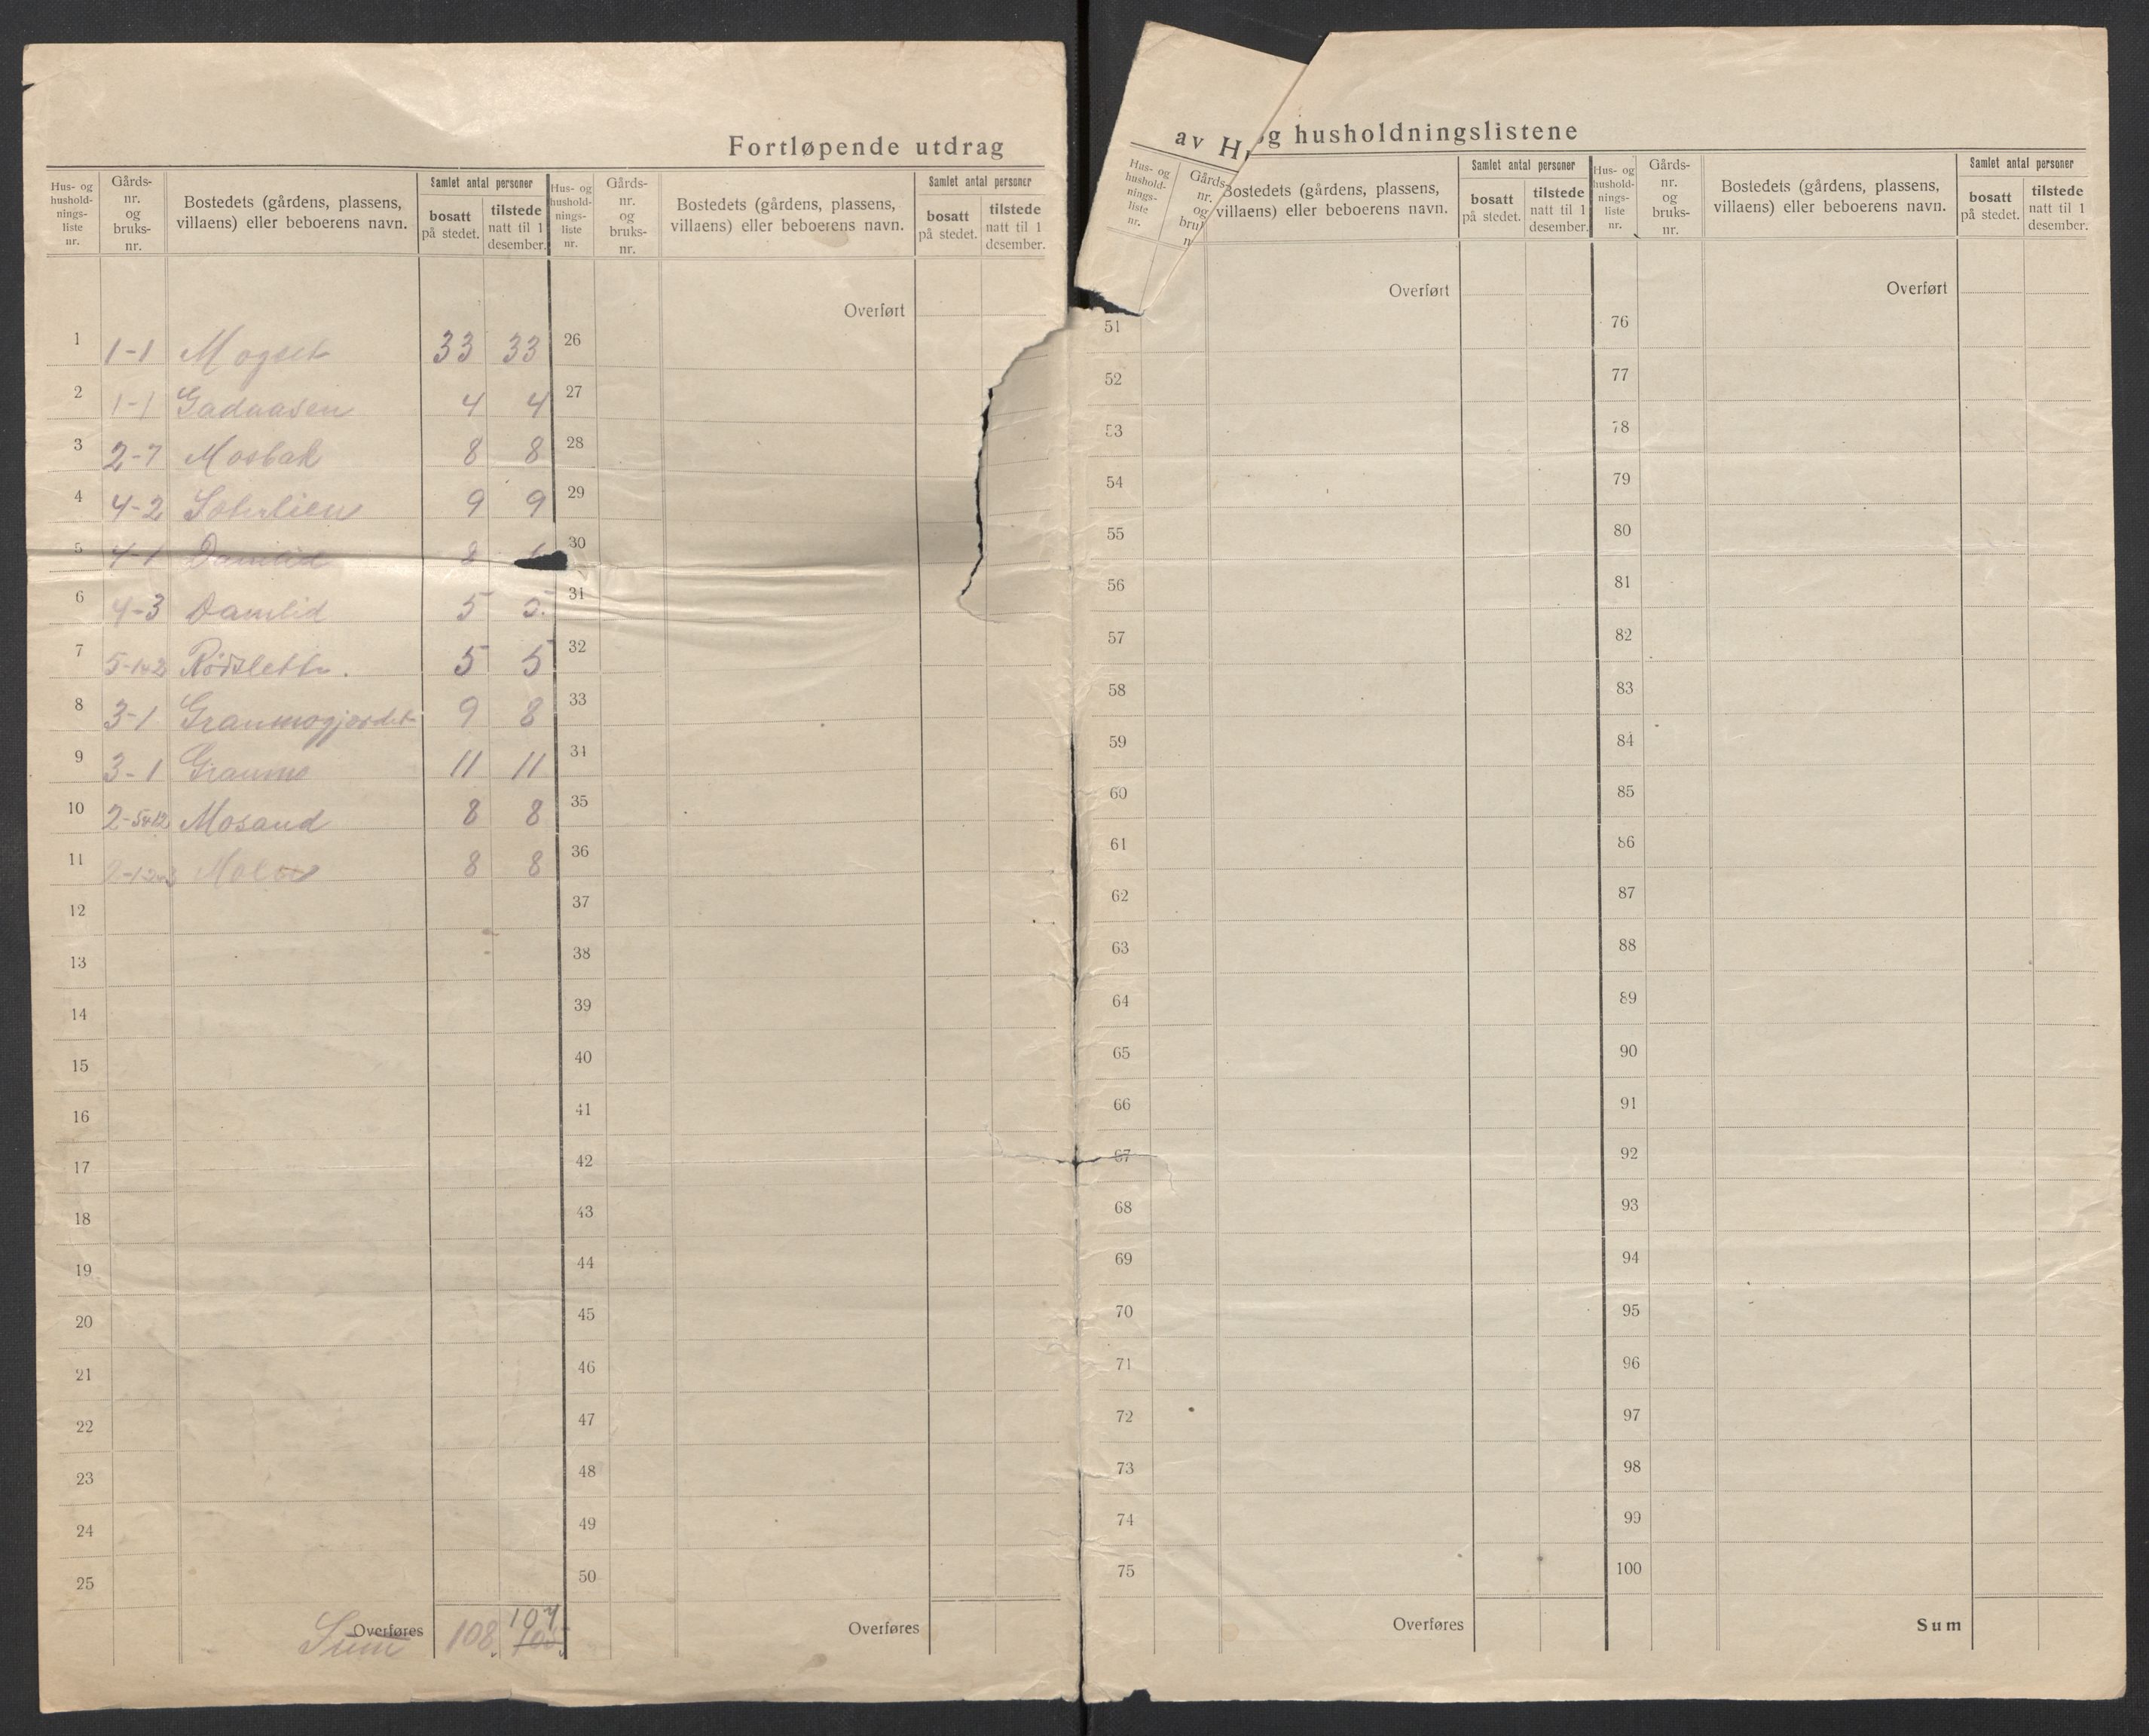 Fortløpende utdrag av H og husholdningslistene
Hus- og husholdnings-liste nr. Gårds-nr. og bruks-nr. Bostedets (gårdens, plassens, villaens) eller beboerens navn. Samlet antal personer bosatt på stedet. tilstede natt til 1 desember.
Hus- og husholdnings-liste nr. Gårds-nr. og bruks-nr. Bostedets (gårdens, plassens, villaens) eller beboerens navn. Samlet antal personer bosatt på stedet. tilstede natt til 1 desember.
Hus- og hushold-nings-liste nr. Gårds nr. og bru n Bostedets (gårdens, plassens, villaens) eller beboerens navn. Samlet antal personer bosatt på stedet. tilstede natt til 1 desember.
Hus- og hushold-nings-liste nr. Gårds-nr. og bruks-nr. Bostedets (gårdens, plassens, villaens) eller beboerens navn. Samlet antal personer bosatt på stedet. tilstede natt til 1 desember.
1 1-1 Mogset 33 33
2 1-1 Gadaasen 4 4
3 2-7 Mosbak 8 8
4 4-2 9 9
5 4-1 Damlid 8
6 4-3 Damlid 5 5.
7 5-1+2 Rödslette. 5 5
8 3-1 Granmogjerdet 9 8
9 3-1 Granmo 11 11
10 2-5+12 Mosand 8 8
11 8 8
12
13
14
15
16
17
18
19
20
21
22
23
24
25
Overføres Sum 108 107
Overført
26
27
28
29
30
31
32
33
34
35
36
37
38
39
40
41
42
43
44
45
46
47
48
49
50
Overføres
Overført
51
52
53
54
55
56
57
58
59
60
61
62
63
64
65
66
67
68
69
70
71
72
73
74
75
Overføres
Overført
76
77
78
79
80
81
82
83
84
85
86
87
88
89
90
91
92
93
94
95
96
97
98
99
100
Sum